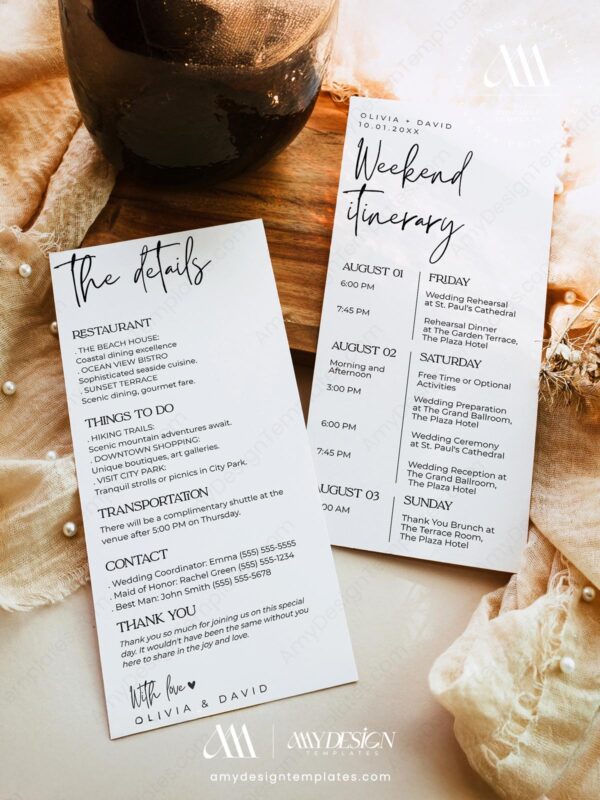 OLIVIA + DAVID
10.01.20XX
Weekend
itinerary
AUGUST 01
FRIDAY
6:00 PM
Wedding Rehearsal
at St. Paul's Cathedral
7:45 PM
Rehearsal Dinner
at The Garden Terrace,
The Plaza Hotel
AUGUST 02
SATURDAY
Morning and
Afternoon
Free Time or Optional
Activities
3:00 PM
Wedding Preparation
at The Grand Ballroom,
The Plaza Hotel
6:00 PM
Wedding Ceremony
at St. Paul's Cathedral
7:45 PM
Wedding Reception at
The Grand Ballroom,
The Plaza Hotel
AUGUST 03
SUNDAY
:00 AM
Thank You Brunch at
The Terrace Room,
The Plaza Hotel
The details
RESTAURANT
. THE BEACH HOUSE:
Coastal dining excellence
. OCEAN VIEW BISTRO
Sophisticated seaside cuisine.
. SUNSET TERRACE
Scenic dining, gourmet fare.
THINGS TO DO
. HIKING TRAILS:
Scenic mountain adventures await.
. DOWNTOWN SHOPPING:
Unique boutiques, art galleries.
. VISIT CITY PARK:
Tranquil strolls or picnics in City Park.
TRANSPORTATION
There will be a complimentary shuttle at the
venue after 5:00 PM on Thursday.
CONTACT
. Wedding Coordinator: Emma (555) 555-5555
. Maid of Honor: Rachel Green (555) 555-1234
. Best Man: John Smith (555) 555-5678
THANK YOU
Thank you so much for joining us on this special
day. It wouldn't have been the same without you
here to share in the joy and love.
With love ♥
OLIVIA & DAVID
AMYDESIGN
TEMPLATES
amydesigntemplates.com